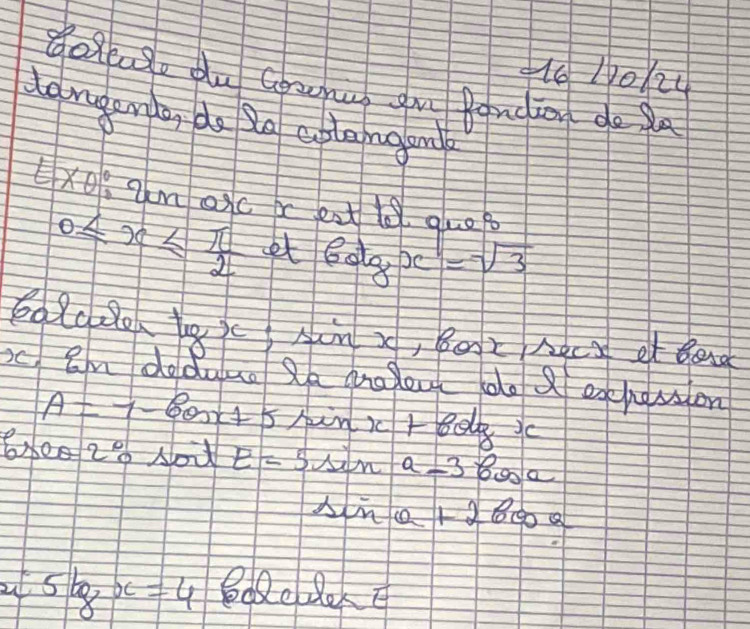 16/10/24
Calcule du Cosinus en fonction de la
tangente, de la cotangente
EXO: Un arc x est tel que:
0 ≤ x ≤ π/2 et Cotg x = √3
Calculer tg x ; sin x, Cosx, secx et Cosec
x. En deduire la valeur de l'expression
A = 1 - Cosx + 5 sin x + Cotg x
Exo 2: soit E = 5 sin a - 3 Cos a
sin a + 2 Cos a
si 5 tg x = 4 Calculer E